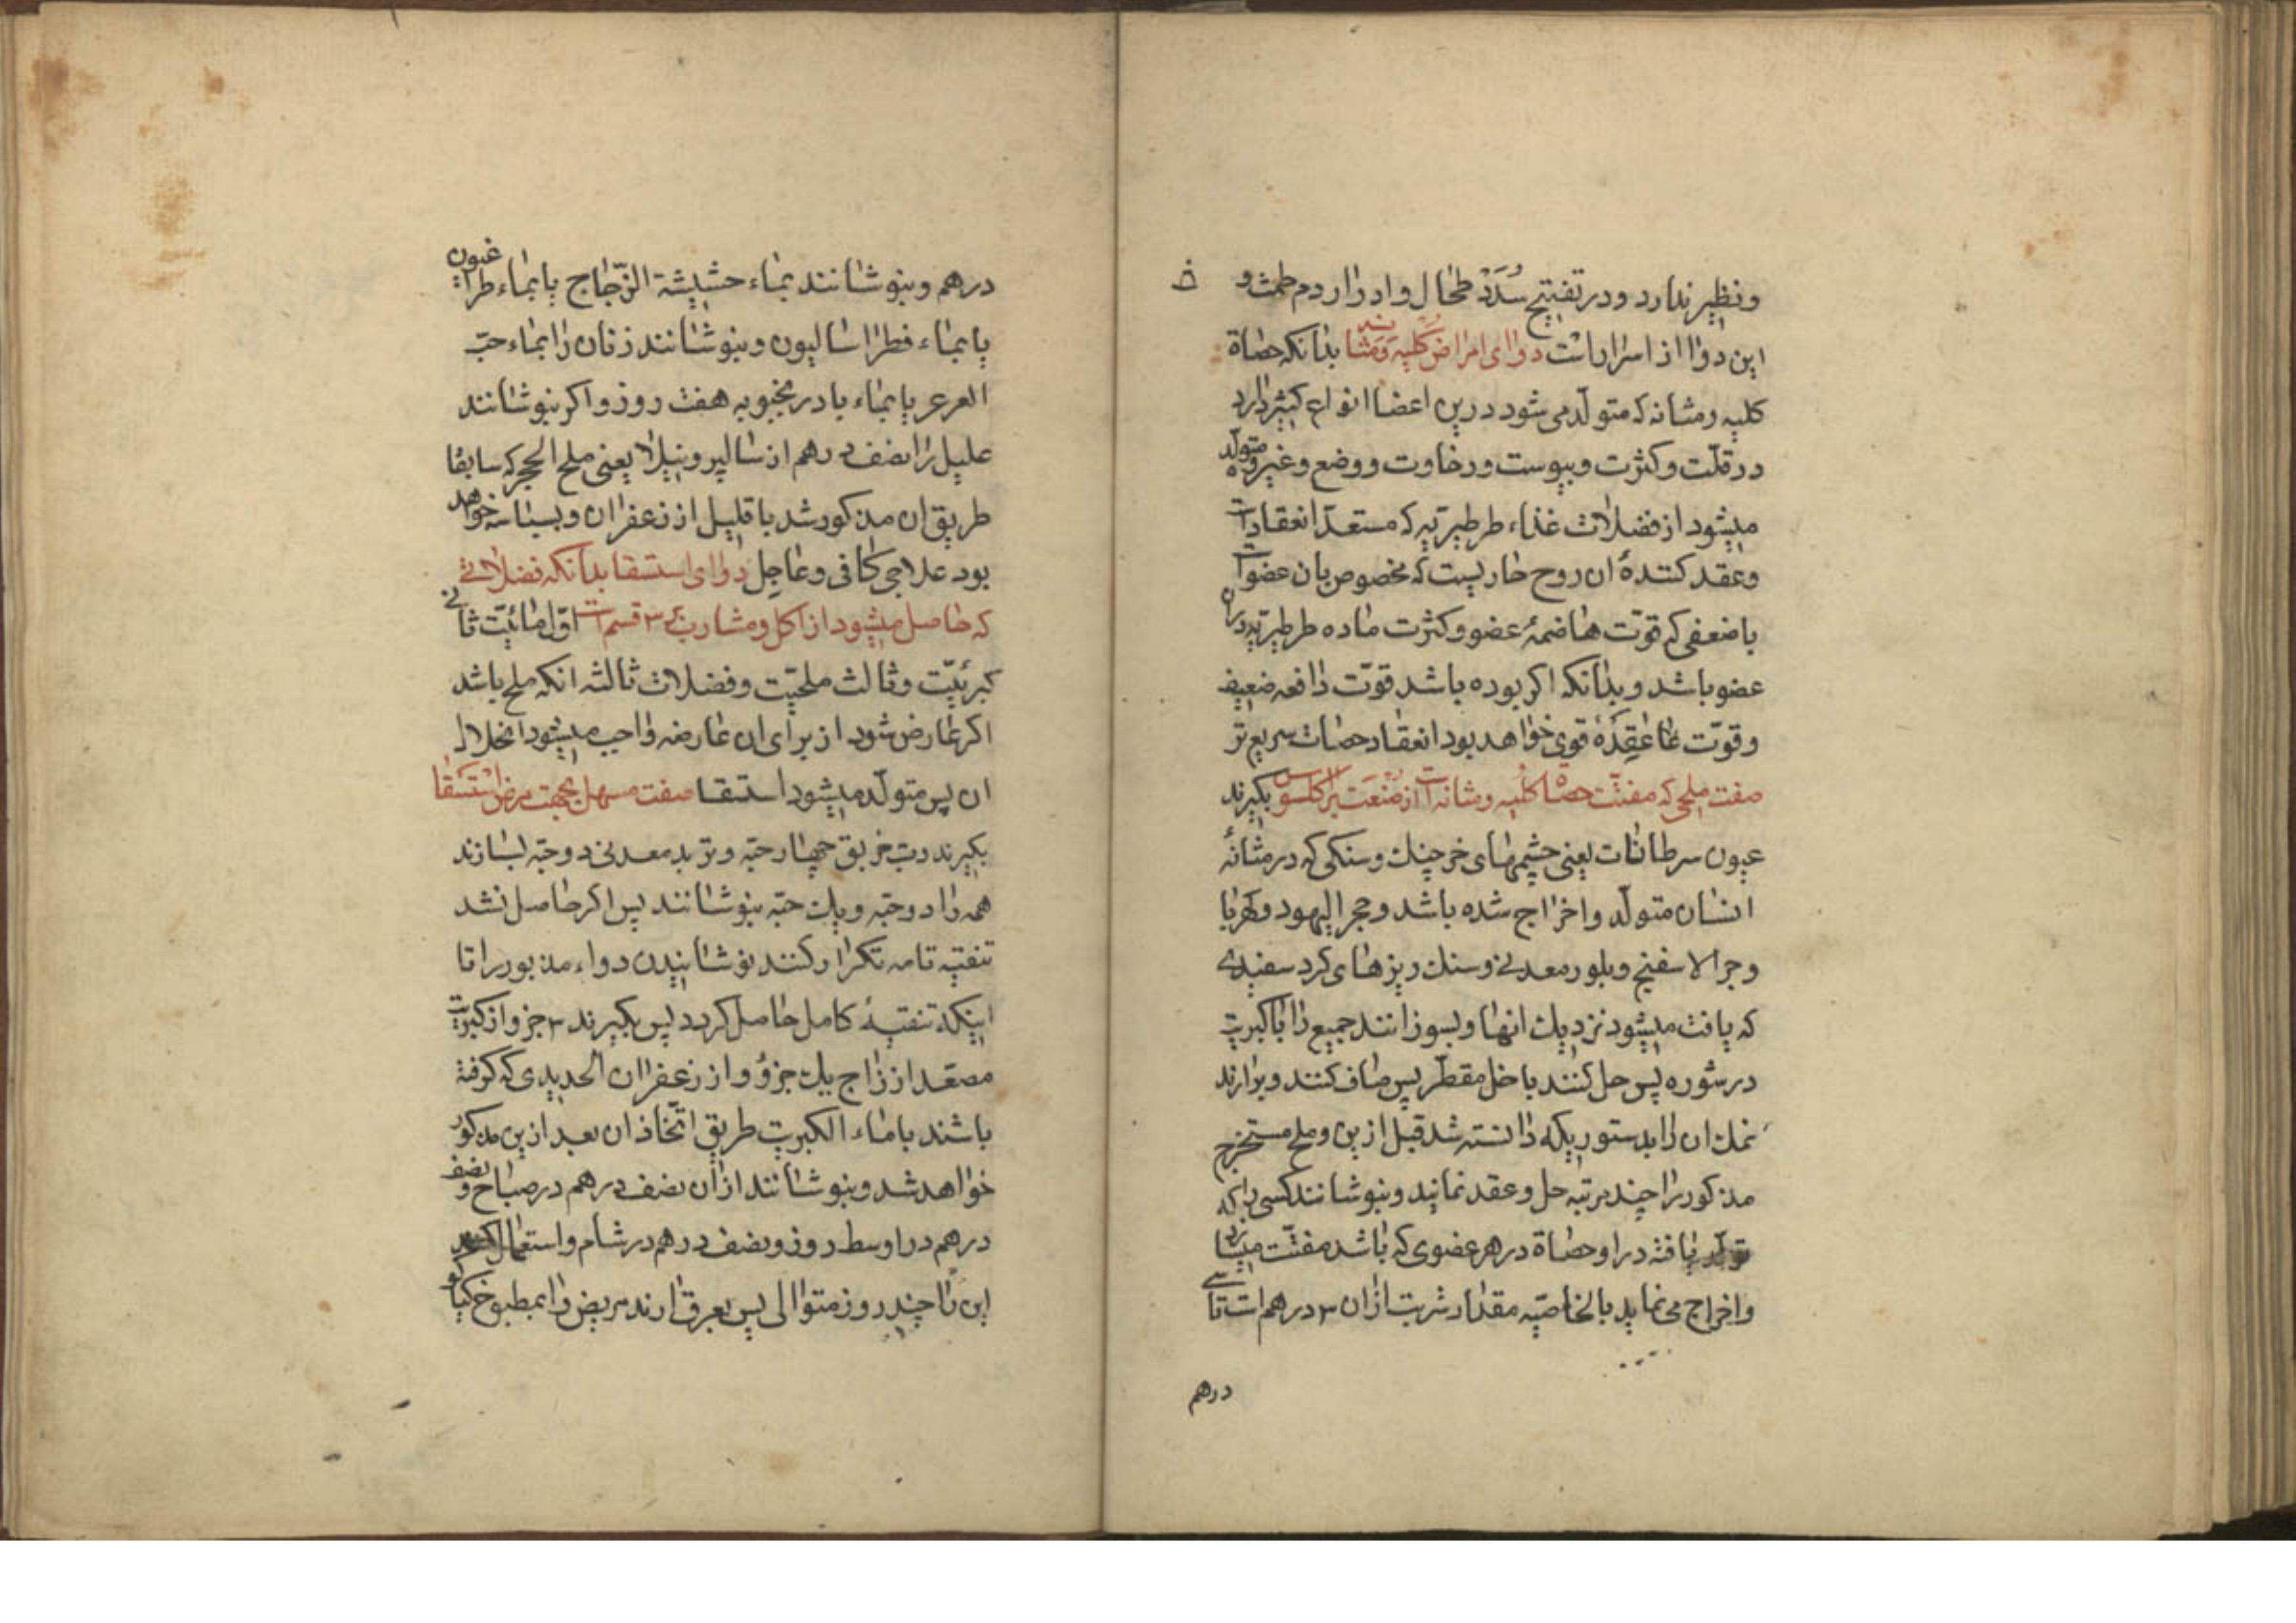 ونظیر ندارد و در تفتیح سُدَدْ طحال و ادرار دم طمث و
این دوا از اسرار است دوای امراض کلیه و مثانه بدانکه حصاة
کلیه و مثانه که متولّد می شود درین اعضا انواع کثیر دارد
در قلّت و کثرت و یبوست و رخاوت و وضع و غیره و متولّد
میشود از فضلات غذاء طرطیریّه که مستعدّ انعقاد است
و عقد کنندهٔ ان روح حاریست که مخصوص بان عضو است
با ضعفی که قوّت هاضمهٔ عضو و کثرت ماده طرطیریّه در ان
عضو باشد و بدانکه اکر بوده باشد قوّت دافعه ضعیف
و قوّت عاقِدَهٔ قوی خواهد بود انعقاد حصات سریع تر
صفت ملحی که مفتّت حصاة کلیه و مثانه است از صنعت براکلسوس بکیرند
عیون سرطانات یعنی چشمهای خرچنك و سنکی که در مثانهٔ
انسان متولّد و اخراج شده باشد و حجر الیهود و کهربا
و حجر الاسفنج و بلور معدنی و سنك ریزهای کرد سفیدی
که یافت میشود نزدیك انها و بسوزانند جمیع را با کبریت
در شوره پس حل کنند با خل مقطّر پس صاف کنند و برارند
نمك ان را بدستوریکه دانسته شد قبل ازین و ملح مستخرج
مذکور را چند مرتبه حل و عقد نمایند و بنوشانند کسی را که
تولّد یافته در او حصاة در هر عضوی که باشد مفتّت میسازد
و اخراج می نماید بالخاصیّه مقدار شربت ازان ۳ درهم است تا سی
درهم
درهم و بنوشانند بماء حشیشة الزّجاج یا بماء طراغیون
یا بماء فطراسالیون و بنوشانند زنان را بماء حبّ
العرعر یا بماء بادرنجبویه هفت روز و اکر بنوشانند
علیل را نصف درهم از سالپرونیلا یعنی ملح الحجر که سابقا
طریق ان مذکور شد با قلیل از زعفران و بسباسه خواهد
بود علاجی کافی و عاجل دوای استسقا بدانکه فضلاتی
که حاصل میشود از اکل و مشارب ۳ قسم است اوّل مائیّت ثانی
کبرئیّت و ثالث ملحیّت و فضلات ثالثه انکه ملح باشد
اکر عارض شود از برای ان عارضه واجب میشود انحلال
ان پس متولّد میشود استسقا صفت مسهل بجهت مرض استسقا
بکیرند ربّ خربق چهار حبّه و تربد معدنی دو حبّه بسازند
همه را دو حبّه و یك حبّه بنوشانند پس اکر حاصل نشد
تنقیه تامه تکرار کنند نوشانیدن دواء مذبور را تا
اینکه تنقیهٔ کامل حاصل کردد پس بکیرند ۳ جزو از کبریت
مصعّد از زاج یك جزؤ و از زعفران الحدیدی که کرفته
باشند با ماء الکبریت طریق اتّخاذ ان بعد ازین مذکور
خواهد شد و بنوشانند ازان نصف درهم در صباح و نصف
درهم در اوسط روز و نصف درهم در شام و استعمال کنند
این را چند روز متوالی پس بعرق ارند مریض را بمطبوخ